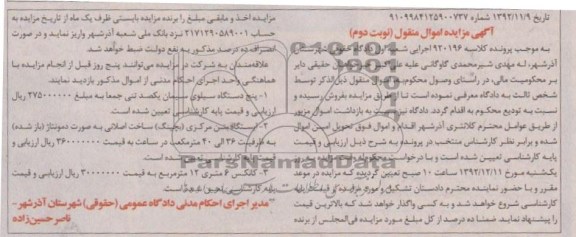 تاریخ ۱۳۹۲/۱۱/۹ شماره ۹۱۰۹۹۸۴۱۲۵۹۰۰۷۳۷
آگهی مزایده اموال منقول (نوبت دوم)
به موجب پرونده کلاسه ۹۲۰۱۹۶ اجرایی
آذرشهر، له مهدی شیرمحمدی گاوگانی علیه حقیقی دایر
بر محکومیت مالی، در راستای وصول محکوم منقول ذیل‌الذکر توسط
شخص ثالث به دادگاه معرفی نموده است تا از طریق مزایده بفروش رسیده و
نسبت به تودیع محکوم به اقدام گردد. دادگاه بازداشت اموال مزبور
از طریق عوامل محترم کلانتری آذرشهر اقدام و اموال فوق تحویل امین اموال
شده و برابر نظر کارشناس منتخب در پرونده به شرح ذیل ارزیابی و قیمت
پایه کارشناسی تعیین شده است و با درخواست
یکشنبه مورخ ۱۳۹۲/۱۲/۱۱ ساعت ۱۰ صبح تعیین گردیده که مزایده در موعد
مقرر و با حضور نماینده محترم دادستان تشکیل و مورد مزایده از قیمت پایه
کارشناسی شروع خواهد شد و به کسی واگذار خواهد شد که بالاترین قیمت
را پیشنهاد نماید. ضمنا ده درصد از کل مبلغ مورد مزایده فی‌المجلس از برنده
مزایده اخذ و مابقی مبلغ را برنده مزایده بایستی ظرف یک ماه از تاریخ مزایده به
حساب ۲۱۷۱۲۹۰۵۸۹۰۰۱ نزد بانک ملی شعبه آذرشهر واریز نماید و در صورت
انصراف ده درصد مذکور به نفع دولت ضبط خواهد شد.
علاقه‌مندان به شرکت در مزایده می‌توانند پنج روز قبل از انجام مزایده با
هماهنگی واحد اجرای احکام مدنی از اموال مذکور بازدید نمایند.
۱- پنج دستگاه سیلوی سیمان یکصد تنی جمعا به مبلغ ۲۷۵۰۰۰۰۰۰ ریال
ارزیابی و قیمت پایه کارشناسی تعیین شده است.
۲- دستگاه بتن مرکزی (بچینگ) ساخت اصلانی به صورت دمونتاژ (باز شده)
به ظرفیت ۳۶ الی ۴۰ مترمکعب در ساعت به قیمت ۳۶۰۰۰۰۰۰۰ ریال ارزیابی و
شده است.
۳- کانکس ۶ متری ۱۲ مترمربع به قیمت ۳۰۰۰۰۰۰۰ ریال ارزیابی و قیمت
پایه کارشناسی تعیین شده است.
مدیر اجرای احکام مدنی دادگاه عمومی (حقوقی) شهرستان آذرشهر -
ناصر حسین‌زاده
ParsNamadData